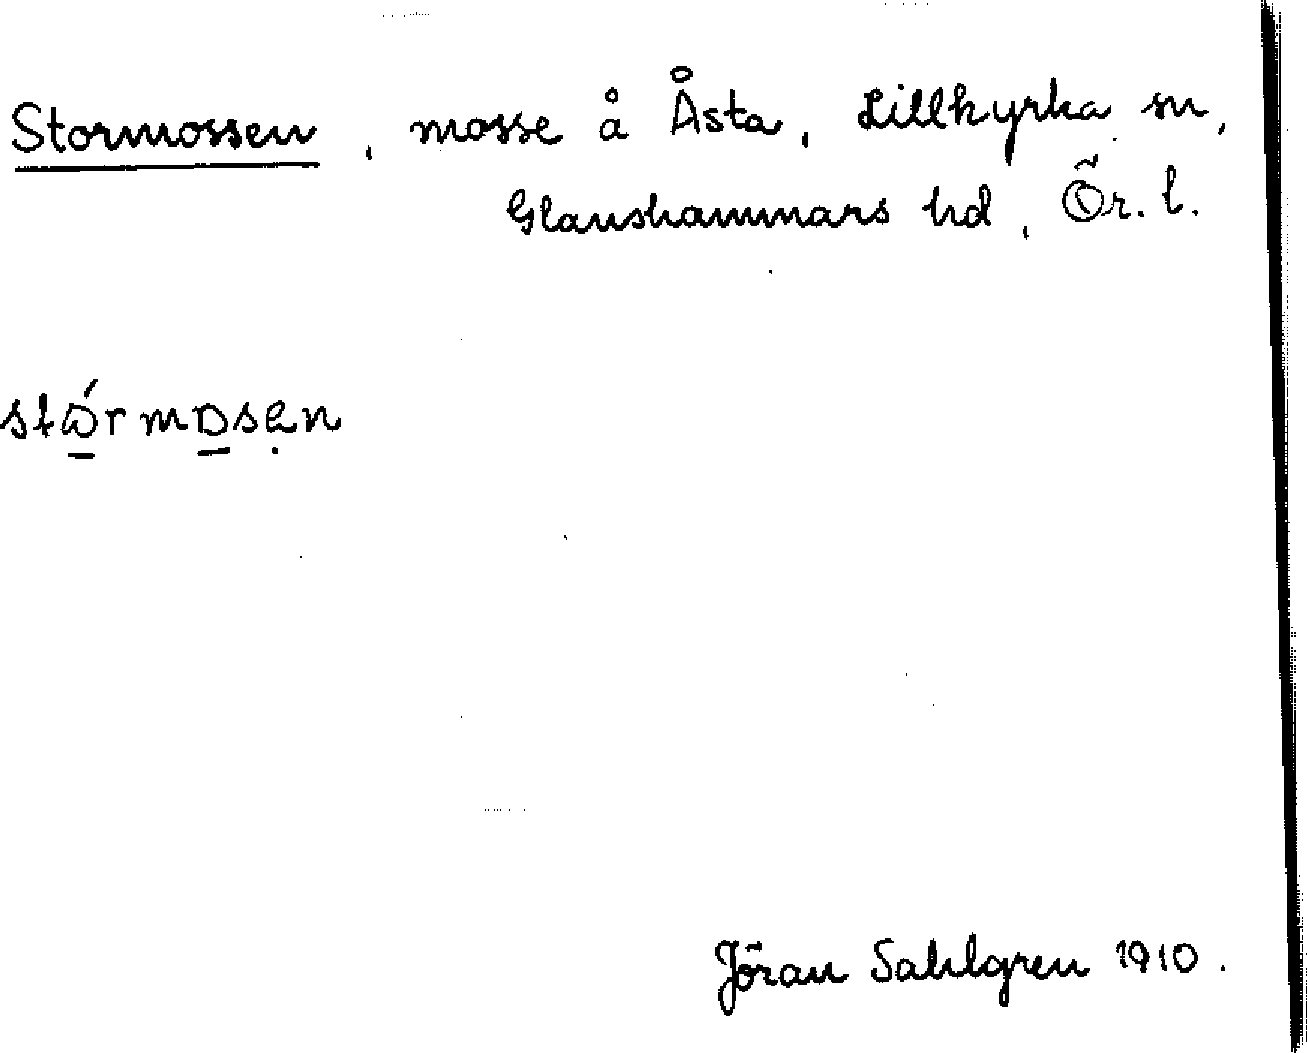 Stormossen, mosse å Åsta, Lillkyrka sn,
Glanshammars hd, Ör. l.
stɷ́rmɒsen
Jöran Sahlgren 1910.